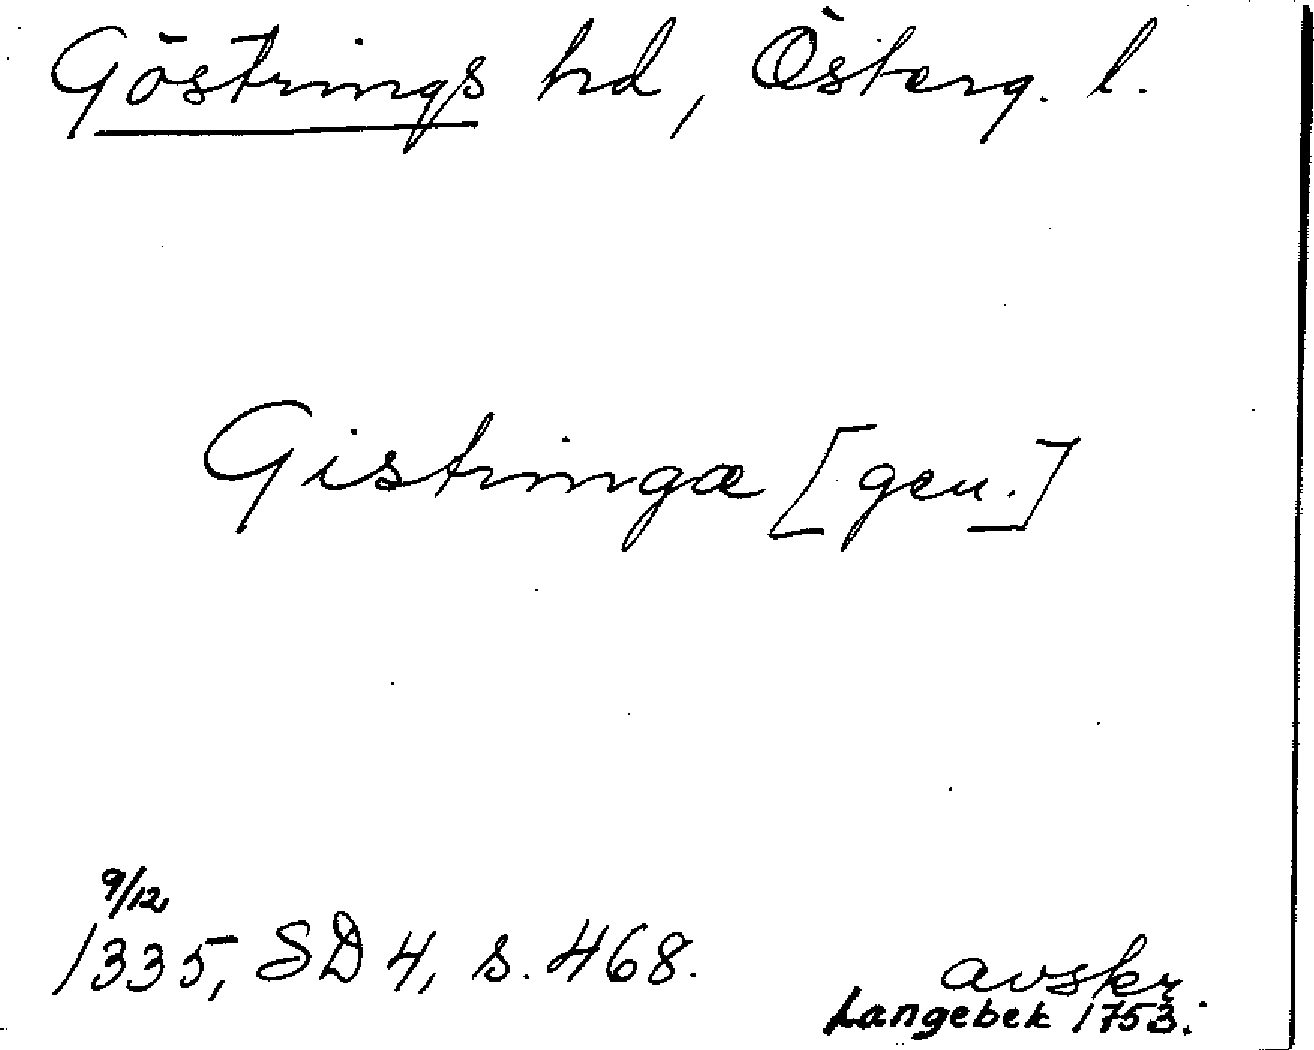 Göstrings hd, Österg. l.
Gistringæ [gen.]
9/12
1335, SD 4, s. 468.
avskr
Langebek 1753.